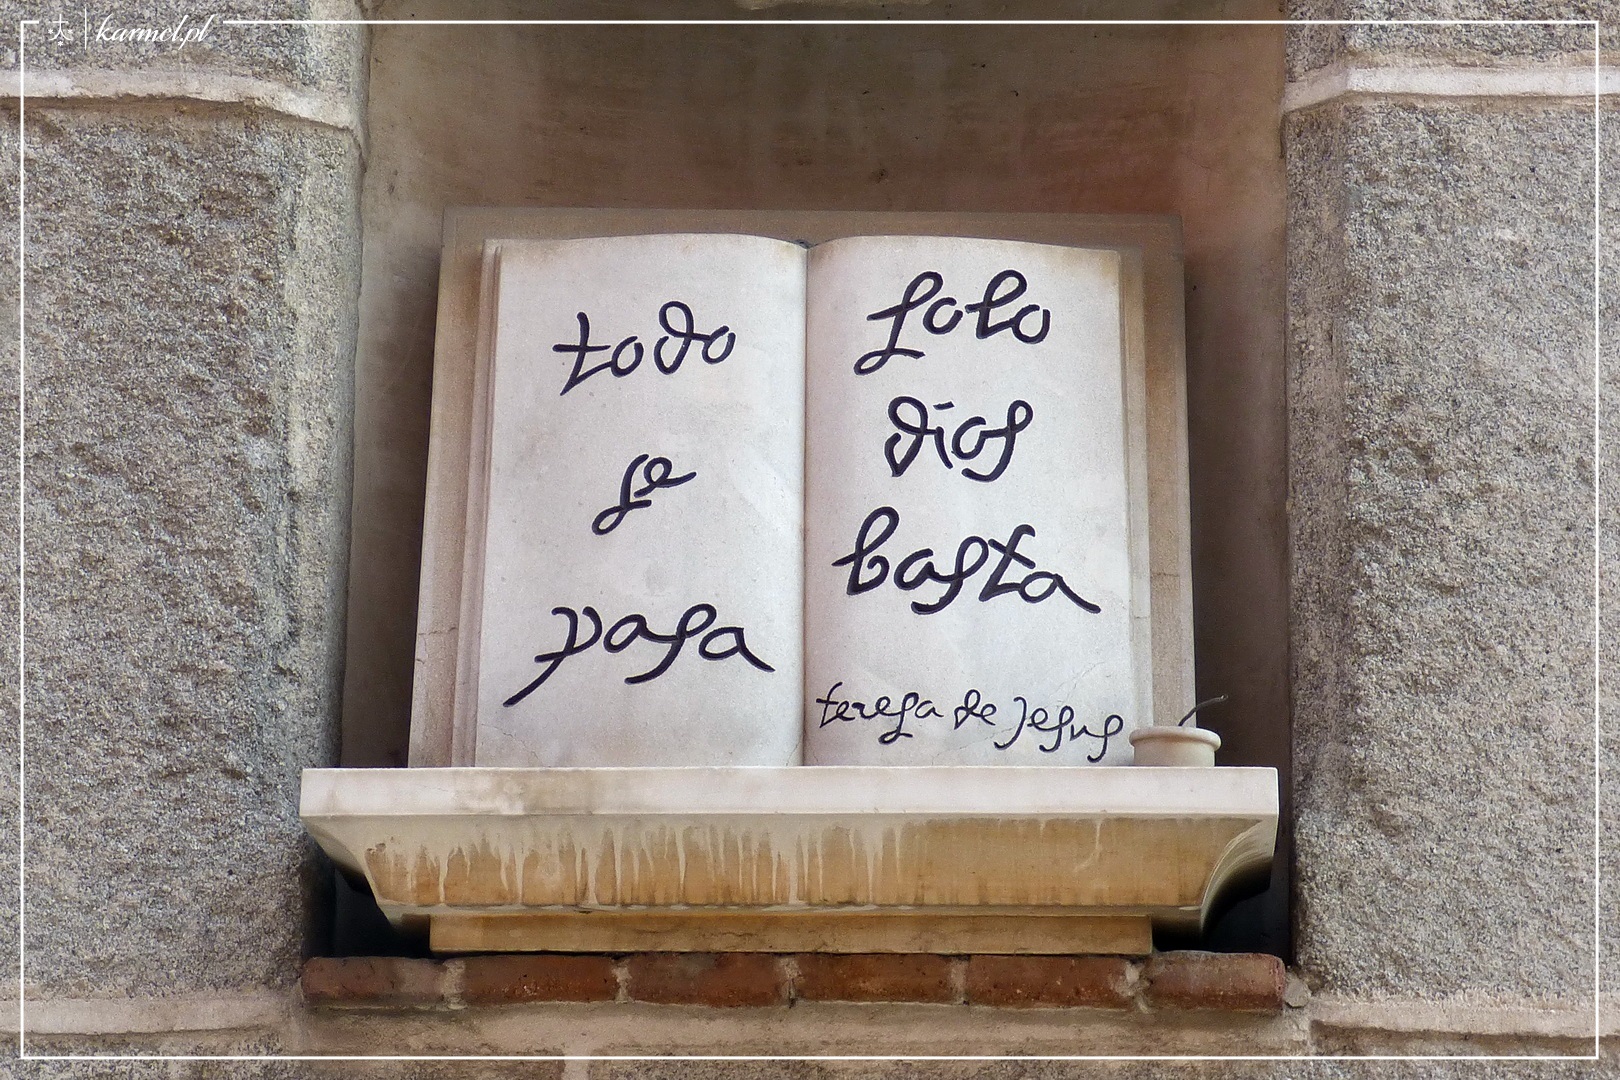 karmel.pl
todo
se
pasa
solo
dios
basta
teresa de jesus